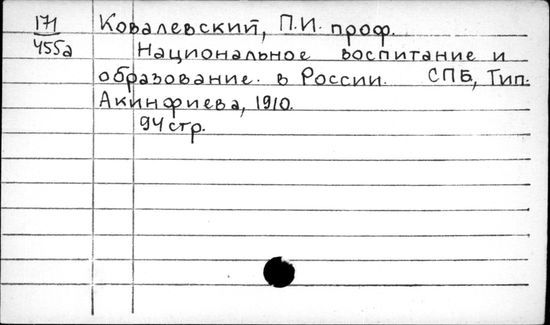 171 Ковалевский, П.И. проф.
455а Национальное воспитание и
образование. в России. СПБ, Тип.
Акинфиева, 1910.
94 стр.